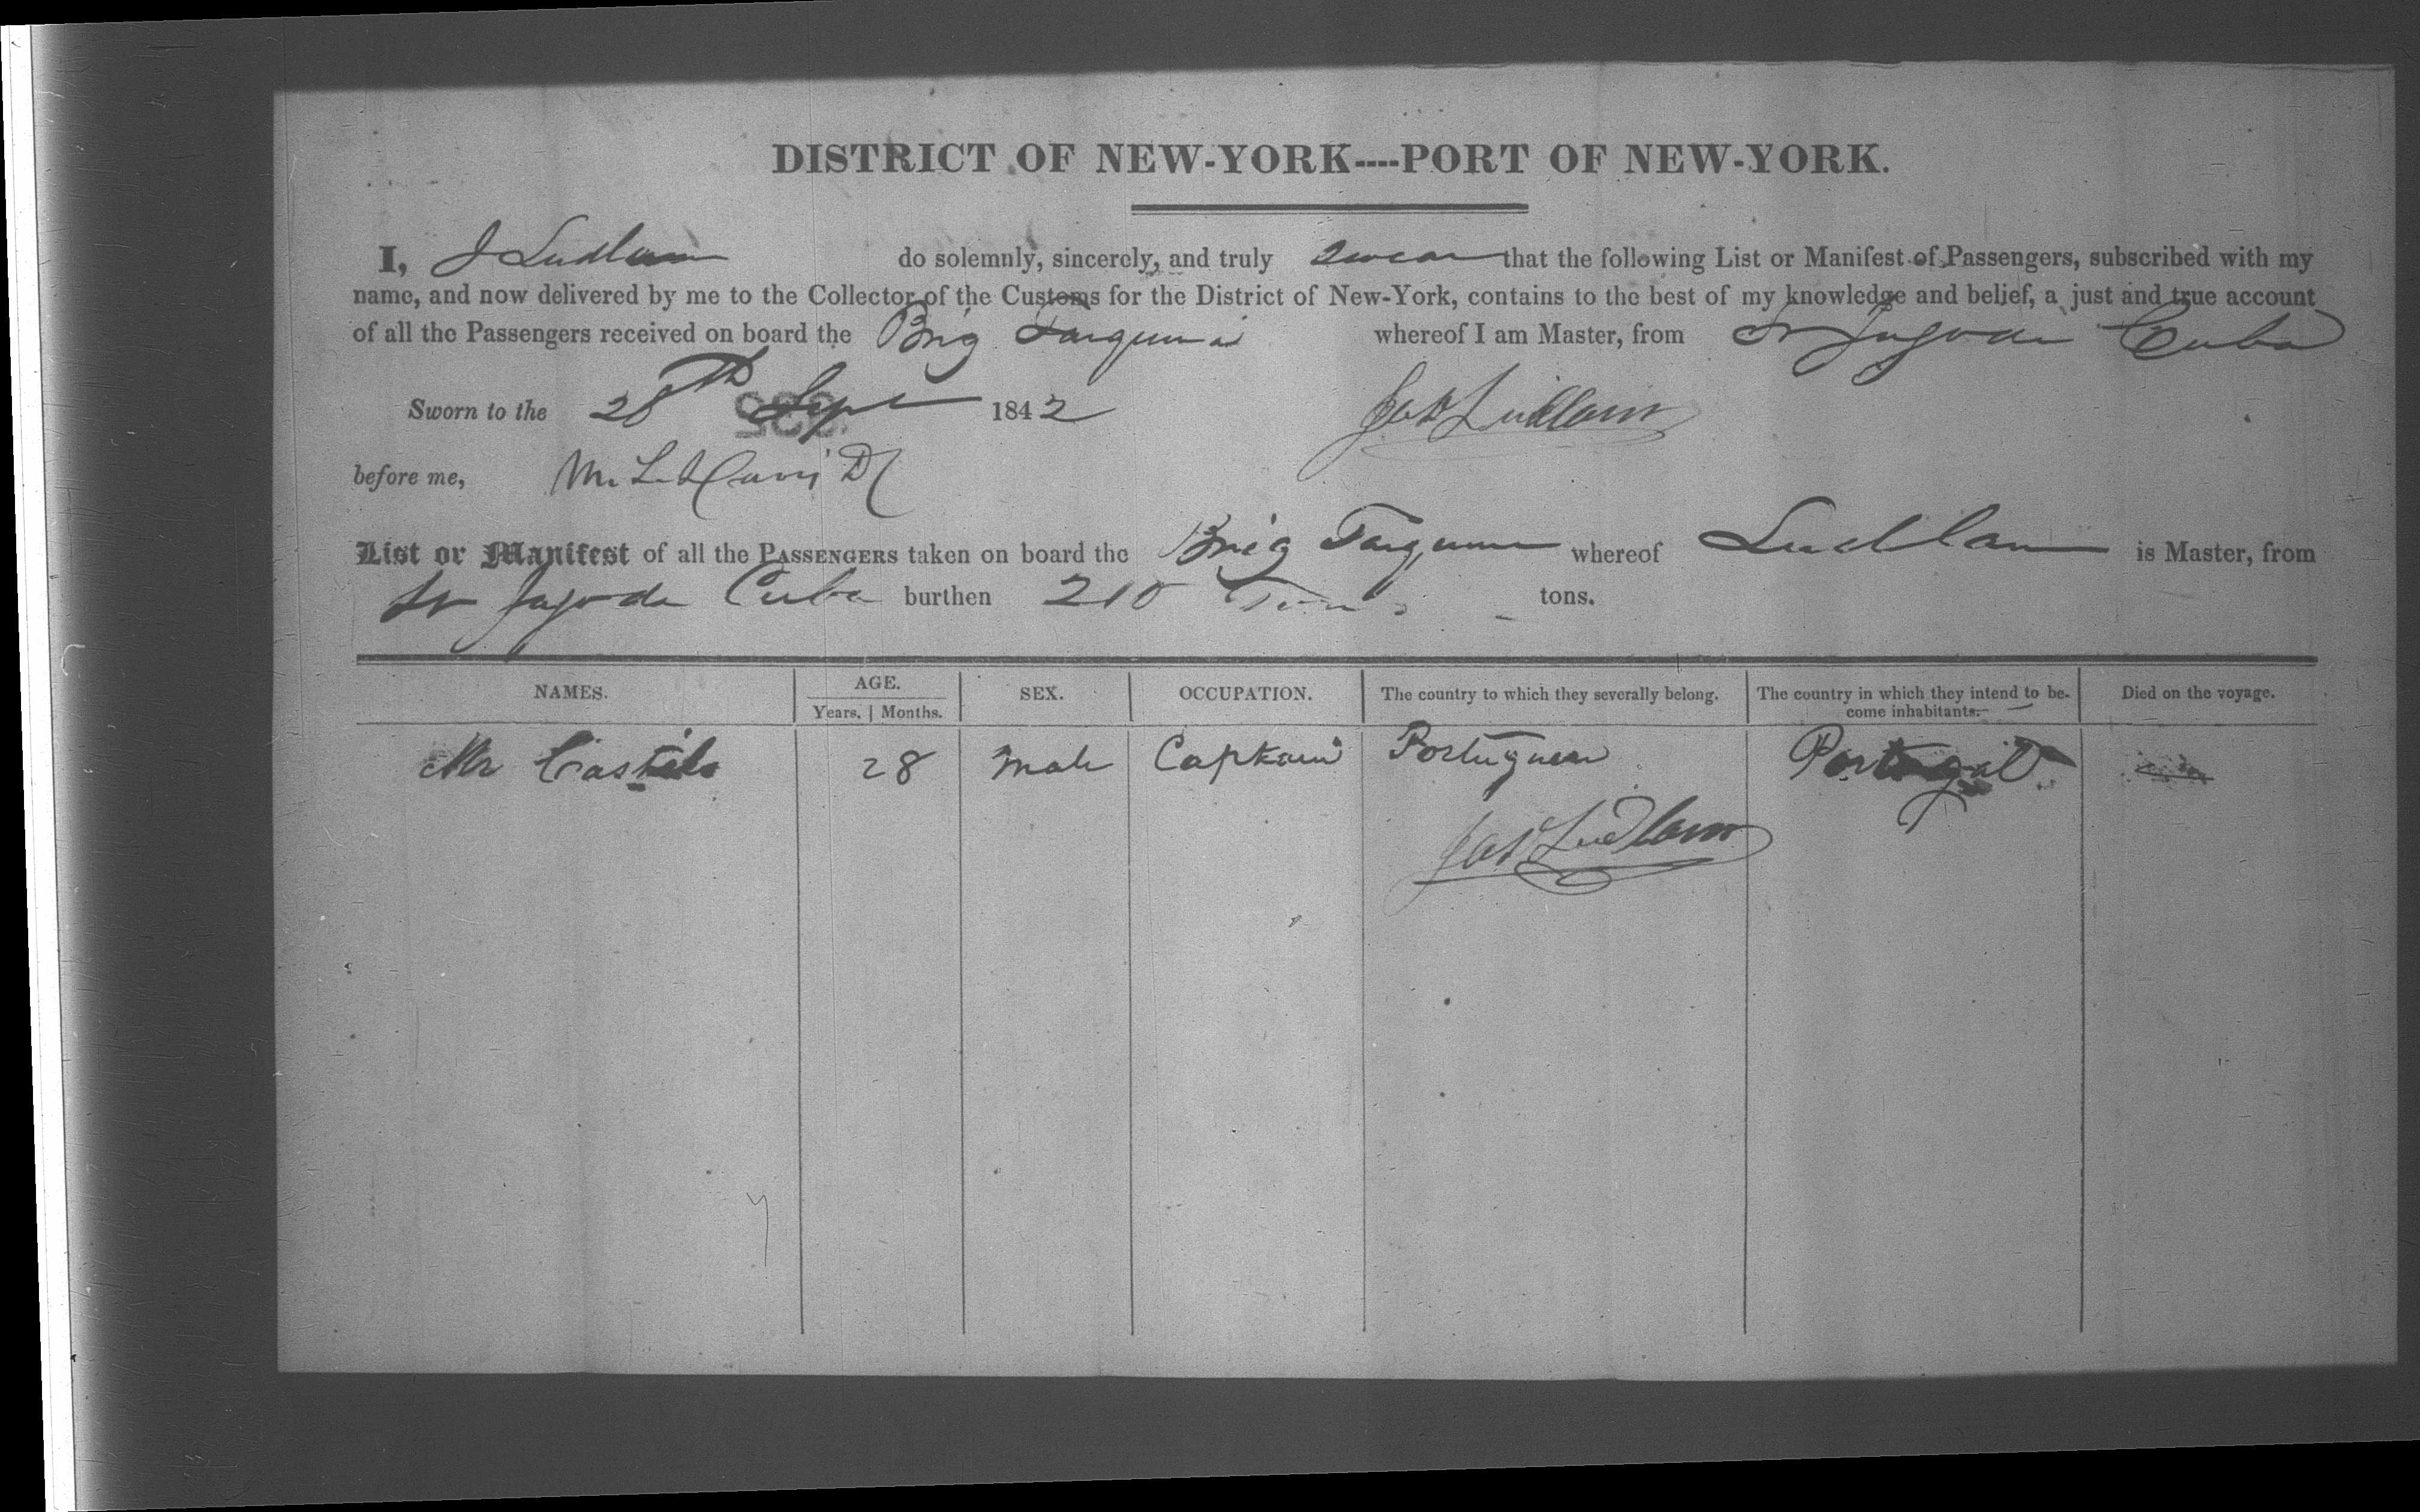 DISTRICT OF NEW-YORK----PORT OF NEW-YORK.
I, J Ludlam do solemnly, sincerely, and truly swear that the following List or Manifest of Passengers, subscribed with my
name, and now delivered by me to the Collector of the Customs for the District of New-York, contains to the best of my knowledge and belief, a just and true account
of all the Passengers received on board the Brig whereof I am Master, from St Jago de Cuba
Sworn to the 28th Sept 1842 Jas Ludlam
before me,
List or Manifest of all the PASSENGERS taken on board the Brig whereof Ludlam is Master, from
St Jago de Cuba burthen 210 Tons tons.
NAMES. AGE. SEX. OCCUPATION. The country to which they severally belong. The country in which they intend to be- Died on the voyage.
Years. | Months. come inhabitants.
Mr 28 male Captain Portuguese Portugal
Jas Ludlam